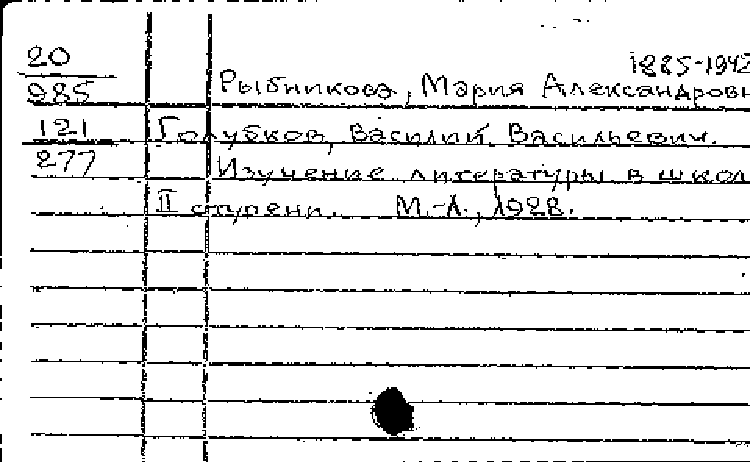 20
985
1885-1942
Рыбникова, Мария Александровн
121
Голубков, Василий Васильевич.
277
Изучение литературы в школ
II ступени. М.-Л., 1928.